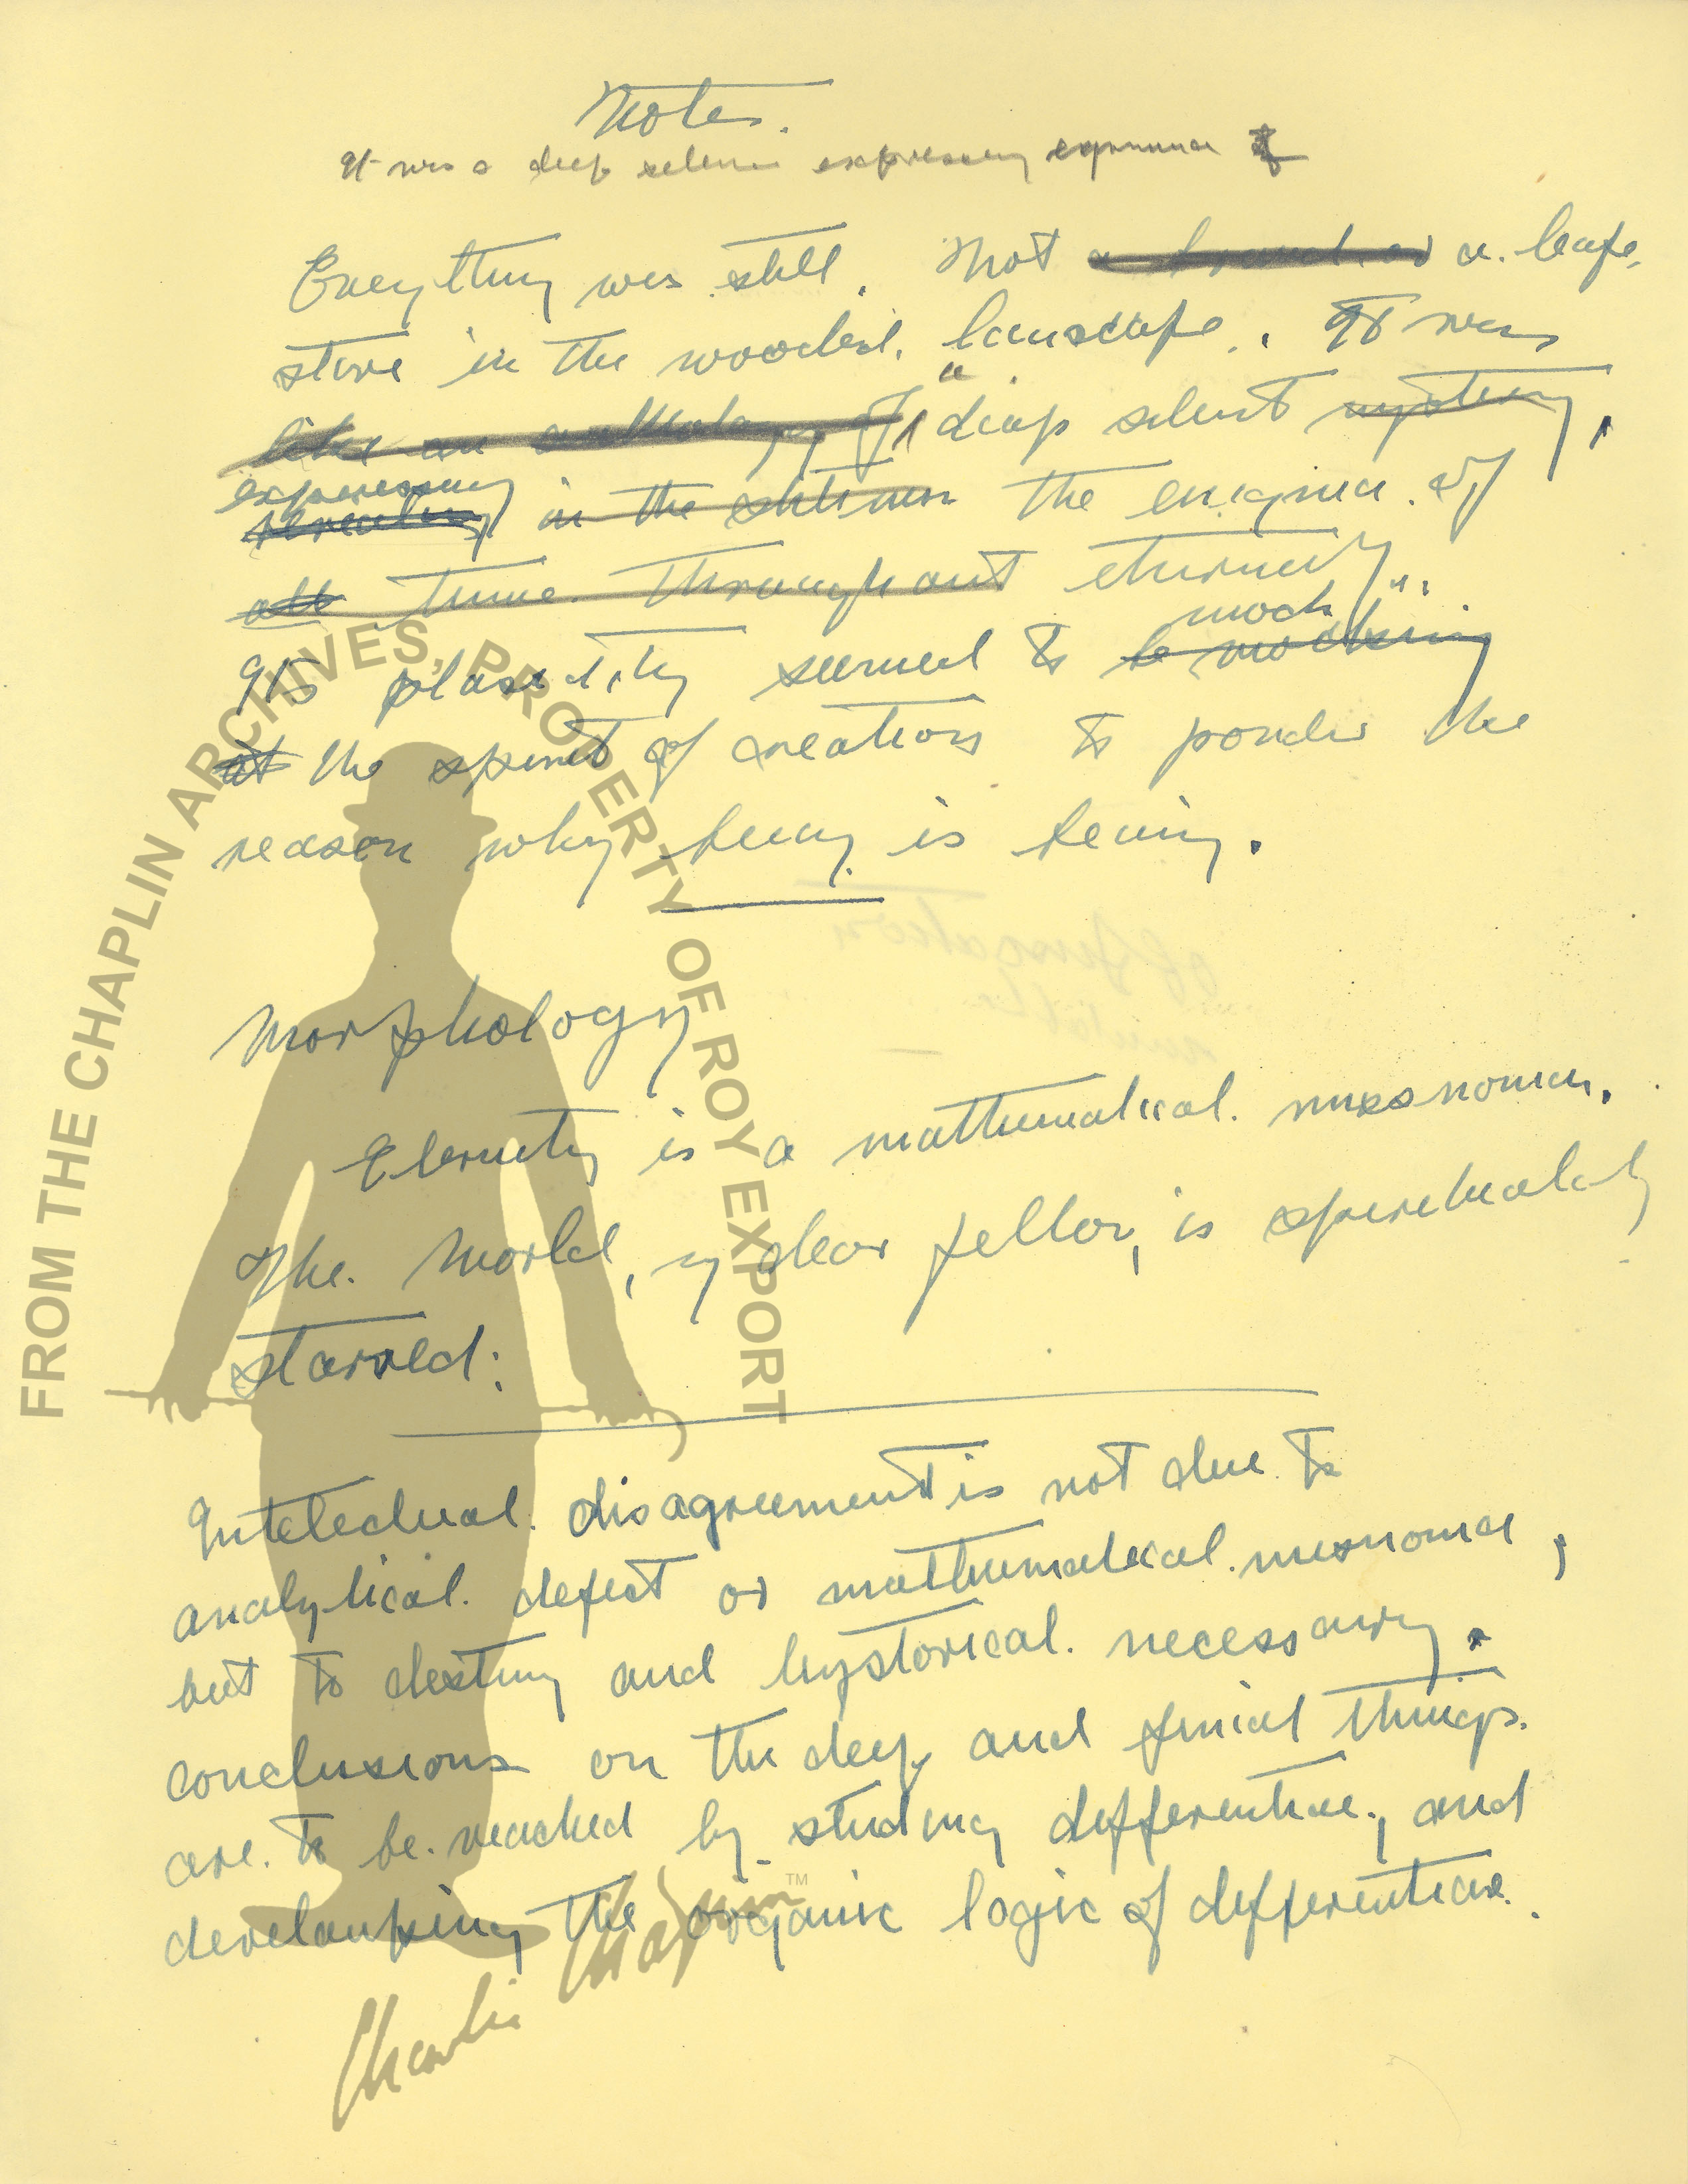 Notes.
It was a deep silence expressing
Everything was still. Not a branch or a leafe
stire in the wooded. lanscape. It was
like an anthology of a deep silent mystery,
expressing
revealing in the stillness the enigma of
all time. Throughout eturnity.
mock
Its plasidity seemed to be mocking
at the spirit of creation to ponder the
reason why being is being.
Morphology
Eternity is a mathumatical. misnomer.
The World, my dear fellow, is spiretualaly
starved:
Inteledual. disagreement is not due to
analytical. defect or mathumatical. misnomer,
but to destiny and hystorical. necessary.
conclusions on the deep and finial things.
are. to be. reached by studing differentiae, and
develouping the organic logic of differentiae.
FROM THE CHAPLIN ARCHIVES, PROPERTY OF ROY EXPORT
Charlie Chaplin™